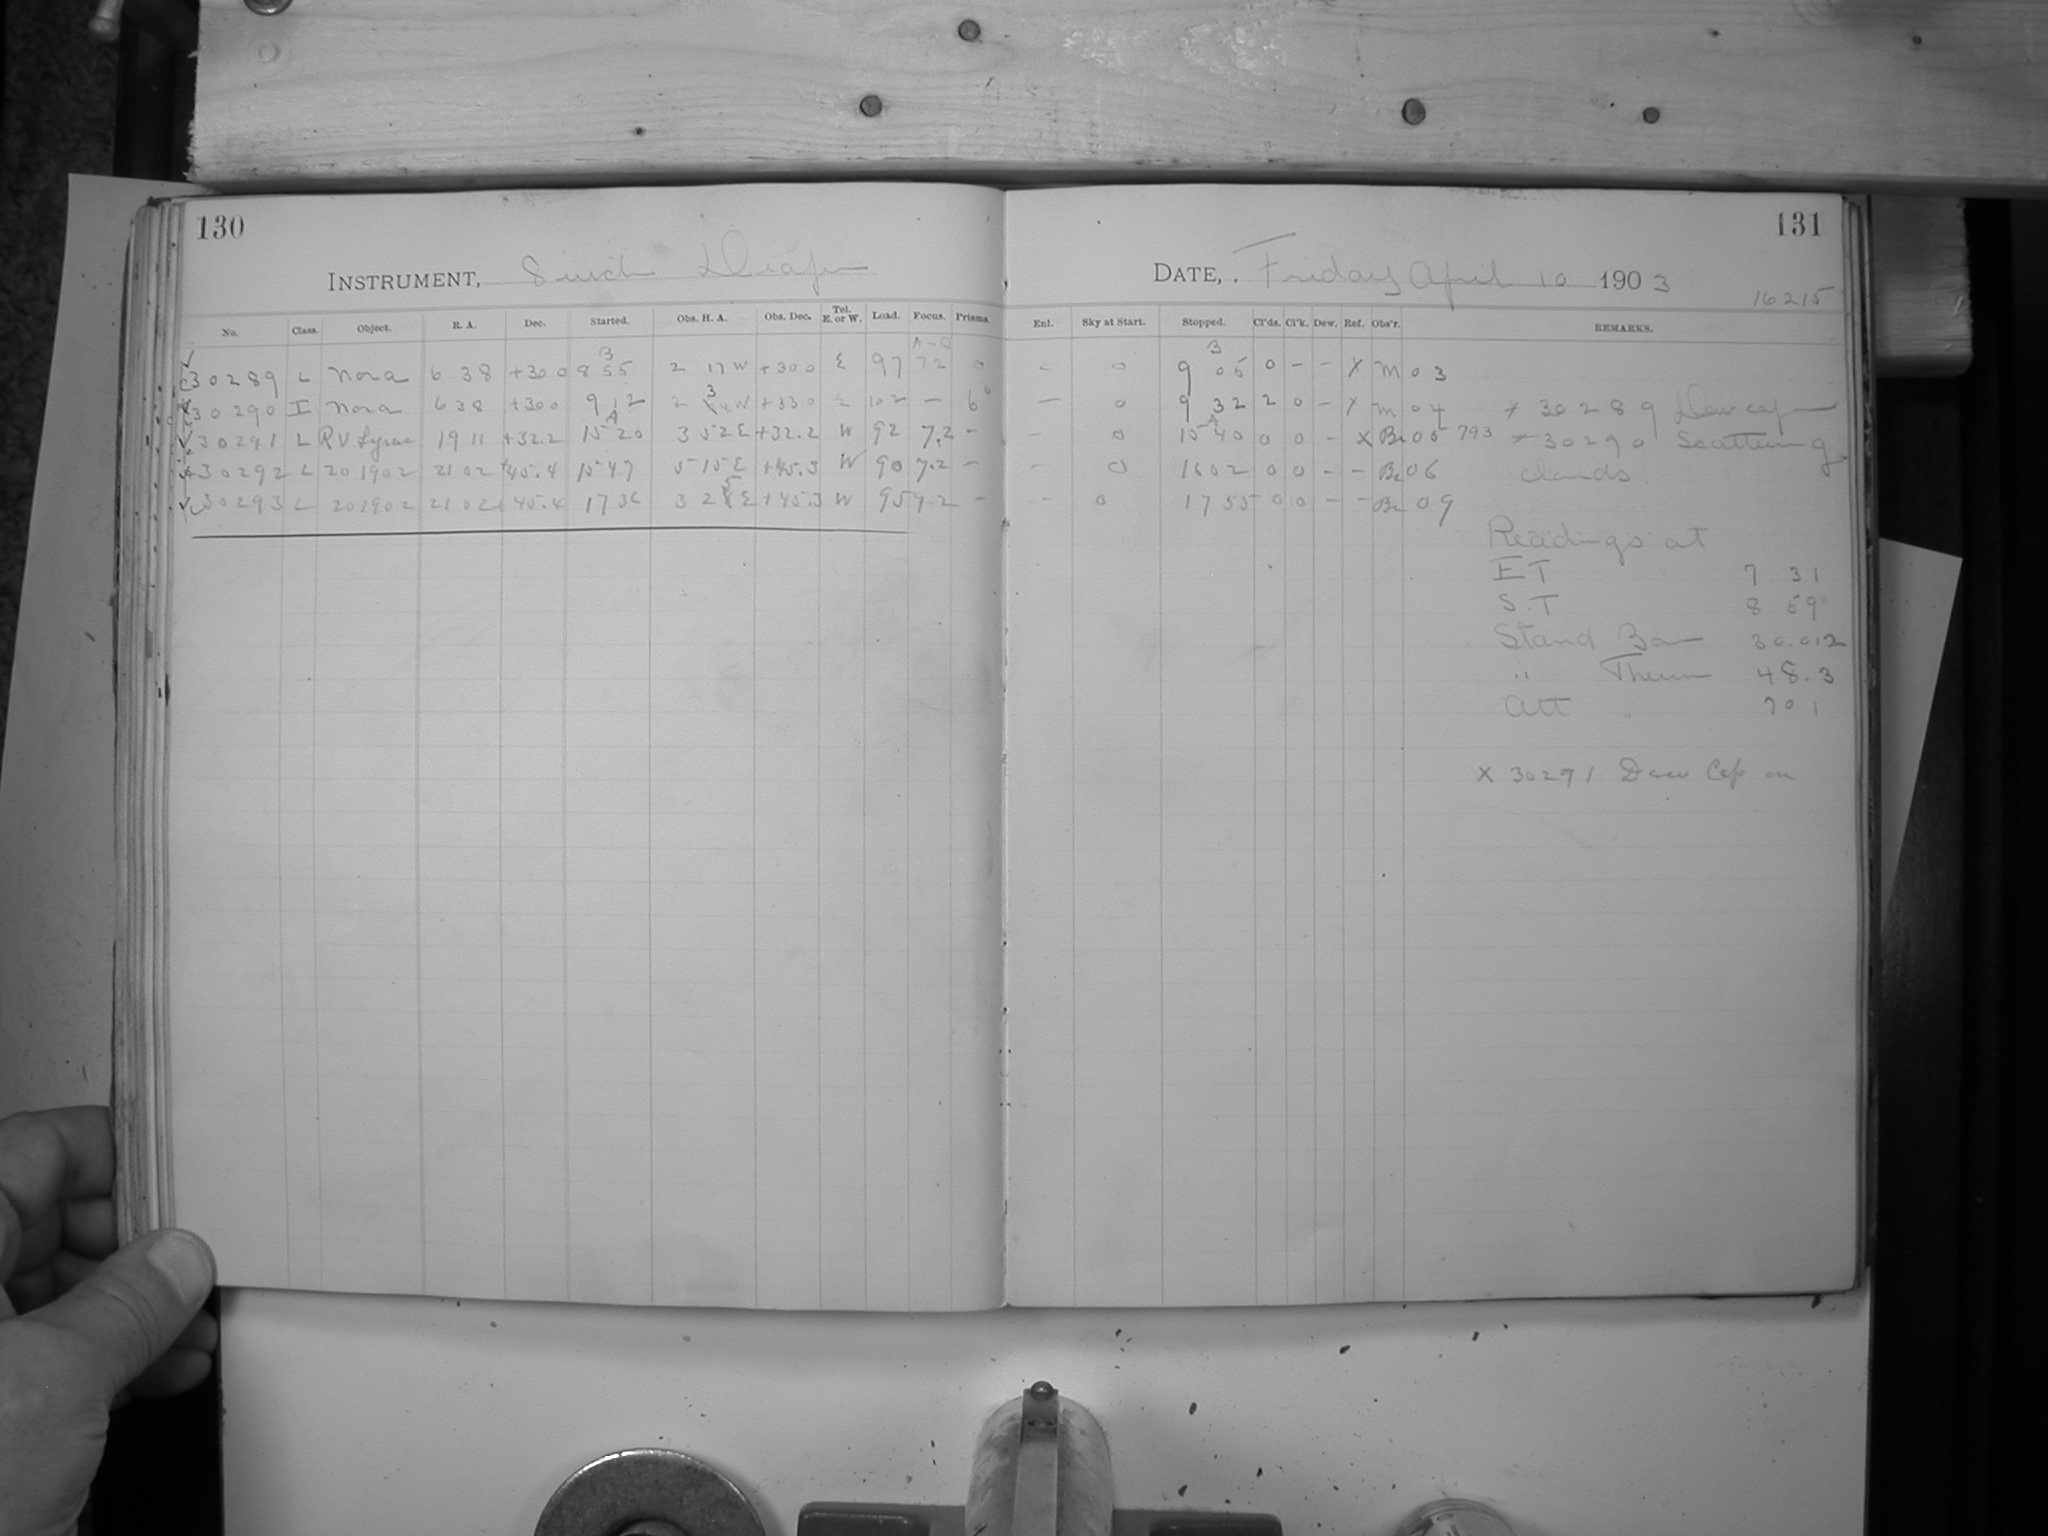 130
131
INSTRUMENT, 8 inch Draper
DATE, Friday April 10 1903
16215
No. Class. Object. R. A. Dec. Started. Obs. H. A. Obs. Dec. Tel. E. or W. Load. Focus. Prisms.
Enl. Sky at Start. Stopped. Cl'ds. Cl'k. Dew. Ref. Obs'r. REMARKS.
30289 L Nova 6 38 +30 0 8 55 2 17 W +30 0 E 97 7.2 0 - 0 9 05 0 - - X M 03
30290 I Nova 6 38 +30 0 9 12 2 W +33 0 E 102 - 6 - 0 9 32 2 0 - X M 04 X 30289 Dew cap
30291 L RV Lyrae 19 11 +32.2 15 20 3 52 E +32.2 W 92 7.2 - - 0 15 40 0 0 - X Br 05 793 X 30290 Scattering
30292 L 201902 21 02 +45.4 15 47 5 15 E +45.3 W 90 7.2 - - 0 16 02 0 0 - - Br 06 clouds
30293 L 201902 21 02 +45.4 17 36 3 2 E +45.3 W 95 7.2 - - 0 17 55 0 0 - - Br 09
Readings at
E T 7 31
S.T 8 59
Stand Bar 30.012
" Therm 48.3
Att " 70.1
X 30291 Dew Cap on